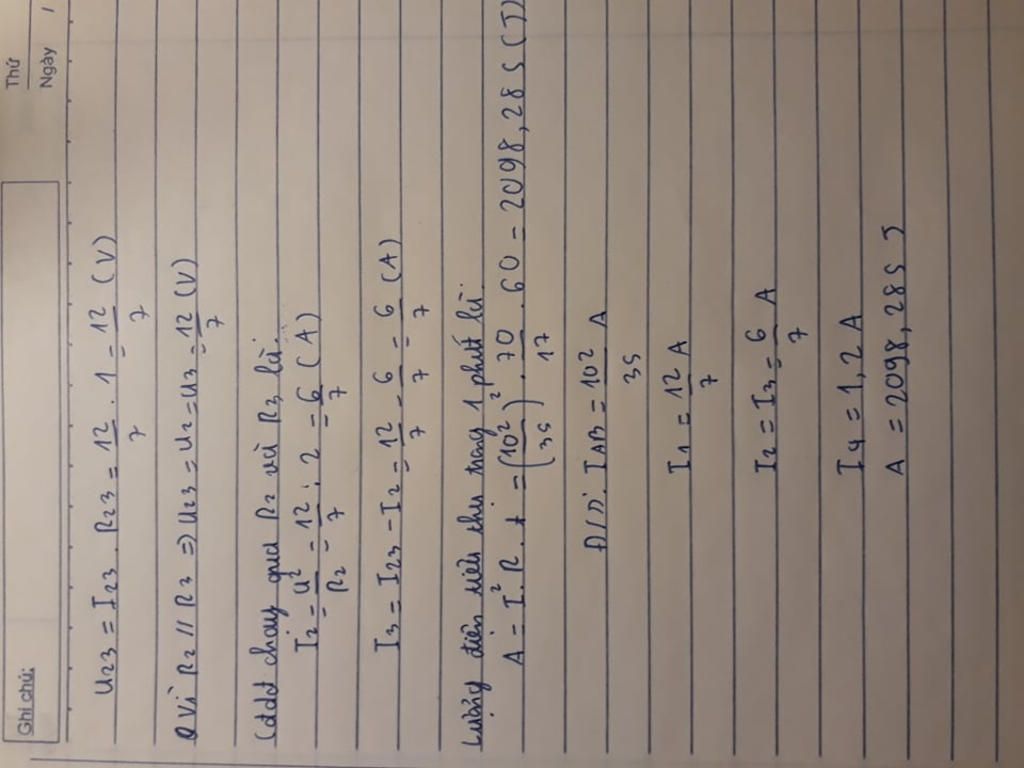 Thứ
Ngày /
Ghi chú:
U23 = I23 . R23 = 12/7 . 1 = 12/7 (V)
Vì R2 // R3 => U23 = U2 = U3 = 12/7 (V)
Cđdđ chạy qua R2 và R3 là:
I2 = U2/R2 = 12/7 : 2 = 6/7 (A)
I3 = I23 - I2 = 12/7 - 6/7 = 6/7 (A)
Lượng điện tiêu thụ trong 1 phút là:
A = I² . R . t = (102/35)² . 70/17 . 60 = 2098,285 (J)
Đ/S: IAB = 102/35 A
I1 = 12/7 A
I2 = I3 = 6/7 A
I4 = 1,2 A
A = 2098,285 J